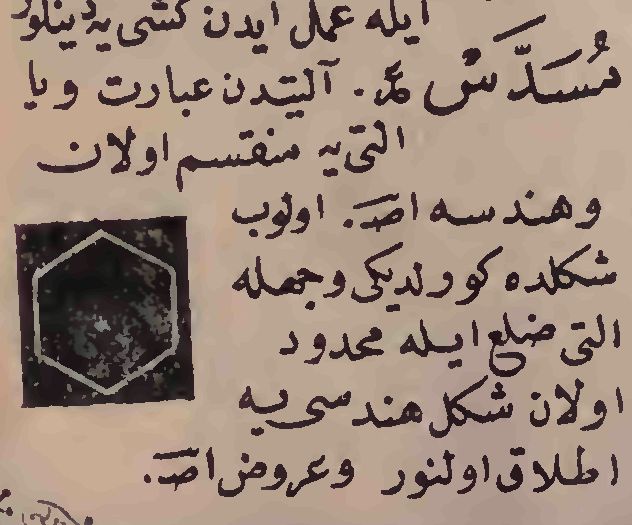 ايله عمل ايدن كشى يه دينلور
مُسَدَّسْ عـ. آلتيدن عبارت ويا
التى يه منقسم اولان
وهندسه اصـ. اولوب
شكلده كورلديكى وجهله
التى ضلع ايله محدود
اولان شكل هندسى يه
اطلاق اولنور وعروض اصـ.